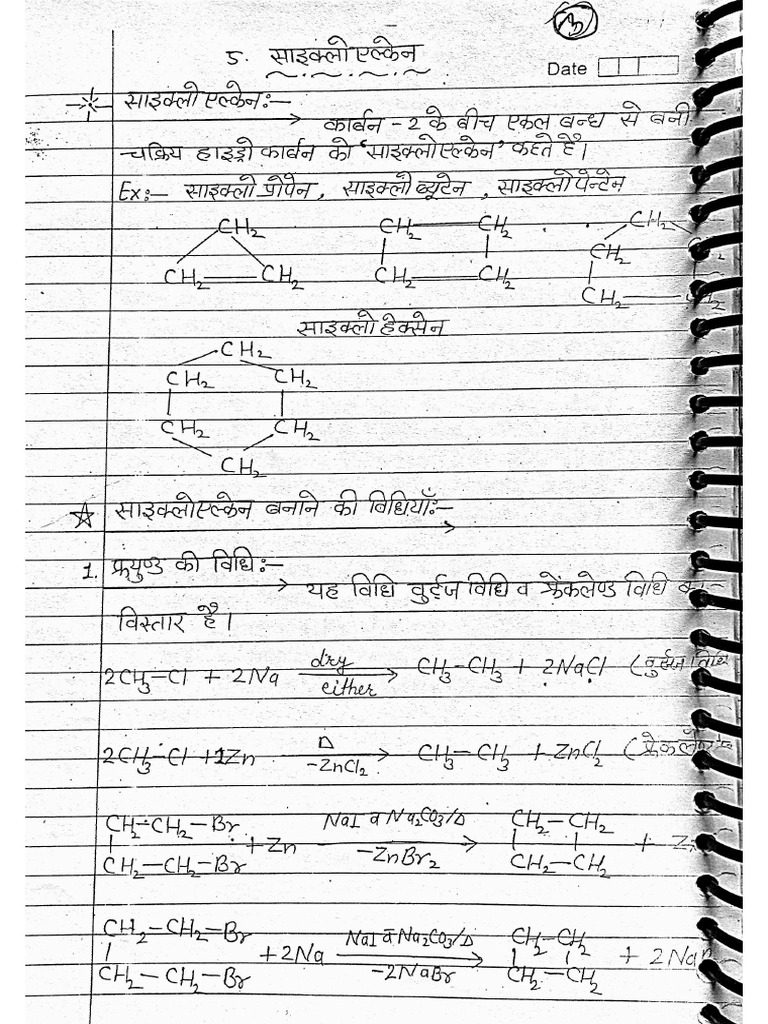 3
5. साइक्लोएल्केन
Date
साइक्लोएल्केन:—
कार्बन-2 के बीच एकल बन्ध से बनी
चक्रिय हाइड्रोकार्बन को 'साइक्लोएल्केन' कहते हैं।
Ex:— साइक्लोप्रोपेन, साइक्लोब्यूटेन, साइक्लोपेन्टेन
CH2 CH2 — CH2 CH2
CH2
CH2 — CH2 CH2 — CH2 CH2 — CH2
साइक्लोहेक्सेन
CH2
CH2 CH2
CH2 CH2
CH2
साइक्लोएल्केन बनाने की विधियाँ:—
1. फ्रयुण्ड की विधि:—
यह विधि वुर्ट्ज विधि व फ्रेंकलेण्ड विधि का
विस्तार है।
2CH3-Cl + 2Na dry either → CH3-CH3 + 2NaCl (वुर्ट्ज विधि
2CH3-Cl + 1Zn Δ -ZnCl2 → CH3-CH3 + ZnCl2
CH2-CH2-Br
CH2-CH2-Br + Zn NaI व Na2CO3/Δ -ZnBr2 → CH2-CH2
CH2-CH2 +
CH2-CH2=Br
CH2-CH2-Br + 2Na NaI व Na2CO3/Δ -2NaBr → CH2-CH2
CH2-CH2 +